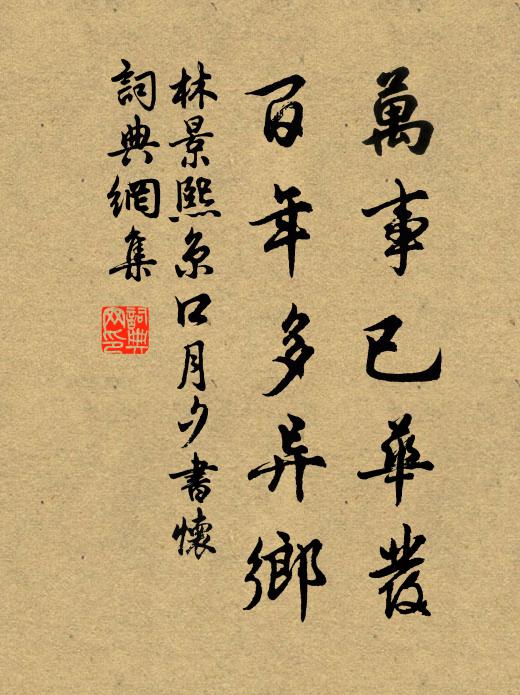 萬事已華發
百年多异鄉
林景熙京口月夕書懷
詞典網集
詞典网印